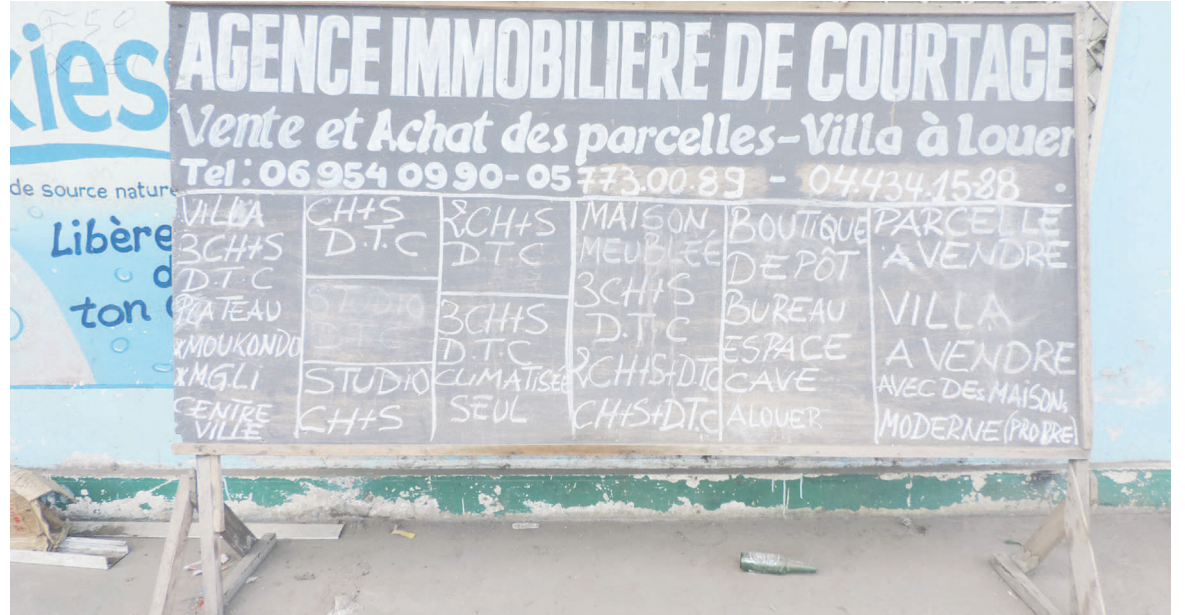 AGENCE IMMOBILIERE DE COURTAGE
Vente et Achat des parcelles-Villa à Louer
Tel: 06 954 09 90-05 773.00.89 - 04.434.15.88
VILLA
3CH+S
D.T.C
PLATEAU
xMOUKONDO
xM.G.Li
CENTRE
VILLE
CH+S
D.T.C
STUDIO
D.T.C
STUDIO
CH+S
2CH+S
D.T.C
3CH+S
D.T.C
CLIMATISÉE
SEUL
MAISON,
MEUBLÉE
3CH+S
D.T.C
2CH+S+D.TC
CH+S+D.T.C
BOUTIQUE
DEPÔT
BUREAU
ESPACE
CAVE
ALOUER
PARCELLE
A VENDRE
VILLA
A VENDRE
AVEC DES MAISON,
MODERNE (PROPRE)
kies
de source nature
Libère
d
ton